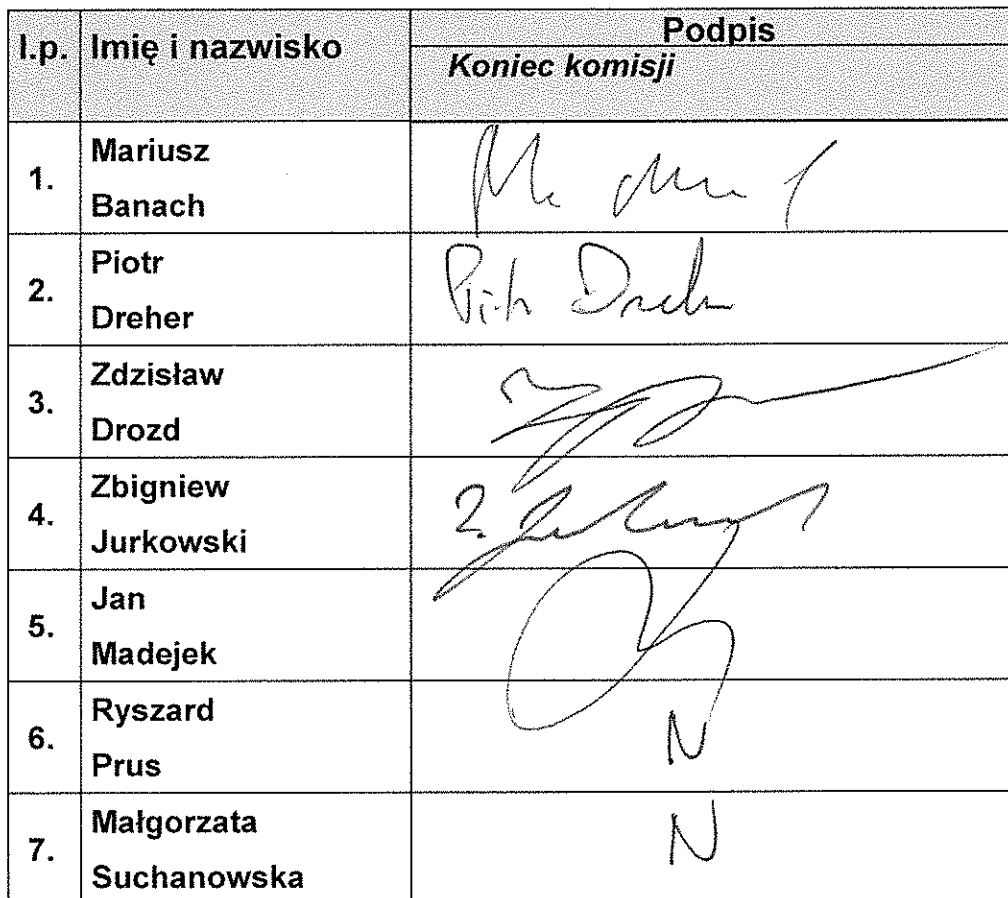 l.p. Imię i nazwisko Podpis
Koniec komisji
1. Mariusz
Banach
2. Piotr
Dreher
Piotr Dreher
3. Zdzisław
Drozd
4. Zbigniew
Jurkowski
5. Jan
Madejek
6. Ryszard
Prus
N
7. Małgorzata
Suchanowska
N